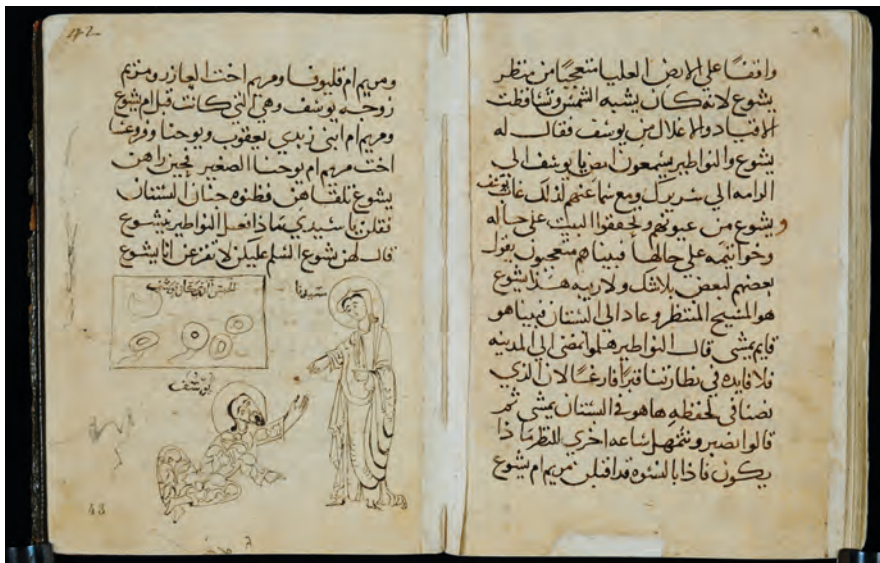 واقفًا علي الارض العليا متعجبًا من منظر
يشوع لانه كان يشبه الشمس وتساقطت
الاقياد والاغلال من يوسف فقال له
يشوع والنواطير يسمعون امض يا يوسف الي
الرامه الي سريرك ومع سماعهم لذلك غاب يوسف
و يشوع من عيونهم ولحفقوا البيت علي حاله
وخواتيمه علي حالها فبيناهم متعجبون يقول
بعضهم لبعض بلاشك ولاريبه هذا يشوع
هو المسيح المنتظر وعاد الي البستان فبينا هو
قايم يمشي قال النواطير هلموا نمضي الي المدينه
فلا فايده في نظارتنا قبرًا فارغًا لان الذي
نصنا في لحفظه ها هو في البستان يمشي ثم
قالوا نصبر ونتمهل ساعه اخري للنظر ما ذا
يكون فاذا بالنسوه قد اقبلن مريم ام يشوع
42
ومريم ام قليوفا ومريم اخت العازر ومريم
زوجه يوسف وهي التي كانت قبل ام يشوع
ومريم ام ابني زبدي يعقوب ويوحنا
اخت مريم ام يوحنا الصغير فحين راهن
يشوع تلقاهن فظنوه جنان البستان
فقلن يا سيدي ماذا فعل النواطير بيشوع
قال لهن يشوع السلم عليكن لا تفزعن انا يشوع
سيدنا
يوسف
43